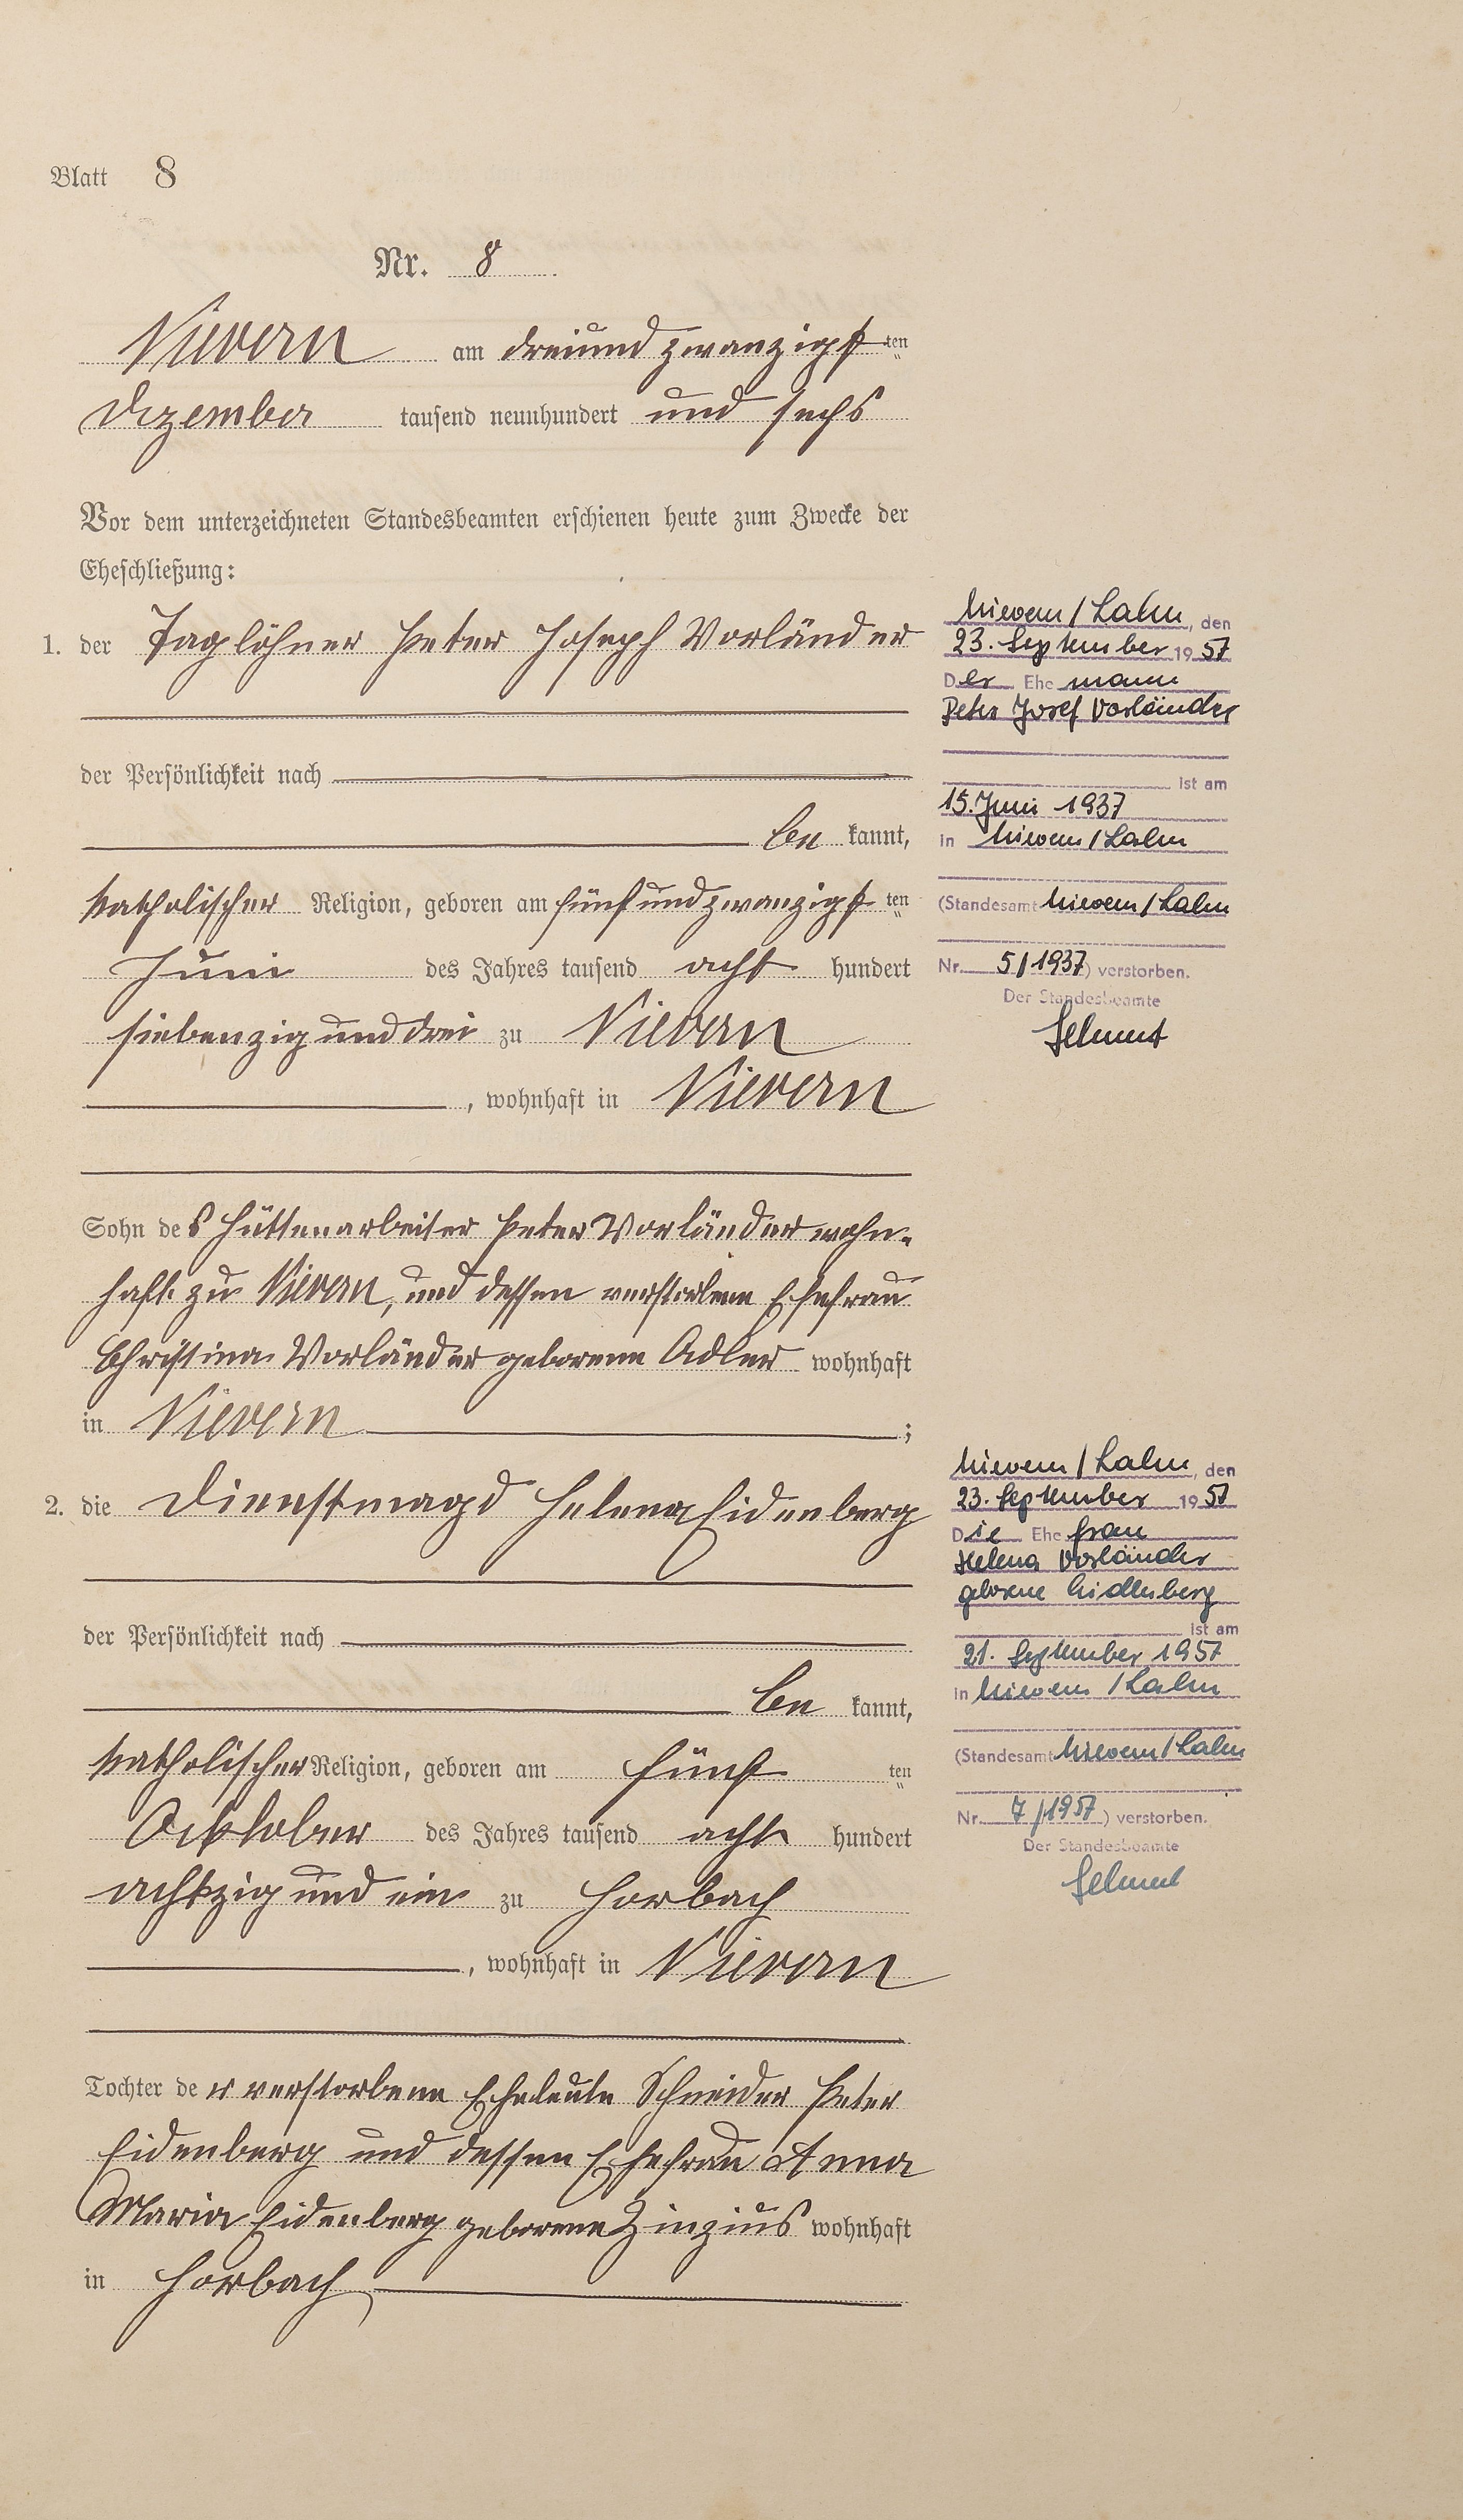 Blatt 8
Nr. 8
Nievern am dreiundzwanzigst ten
Dezember tausend neunhundert und sechs
Vor dem unterzeichneten Standesbeamten erschienen heute zum Zwecke der
Eheschließung:
1. der Taglöhner Peter Joseph Vorländer
der Persönlichkeit nach
be kannt,
katholischer Religion, geboren am fünfundzwanzigst ten
Juni des Jahres tausend acht hundert
siebenzig und drei zu Nievern
, wohnhaft in Nievern
Sohn des Hüttenarbeiter Peter Vorländer wohn-
haft zu Nievern, und dessen verstorbene Ehefrau
Christina Vorländer geborene Adler wohnhaft
in Nievern ;
2. die Dienstmagd Helena Eidenberg
der Persönlichkeit nach
be kannt,
katholischer Religion, geboren am fünf ten
Ocktober des Jahres tausend acht hundert
achtzig und ein zu Horbach
, wohnhaft in Nievern
Tochter der verstorbene Eheleute Schneider Peter
Eidenberg und dessen Ehefrau Anna
Maria Eidenberg geborene Zinzius wohnhaft
in Horbach
Nievern/Lahn, den
23. September 1957
Der Ehemann
Peter Josef Vorländer
ist am
15. Juni 1937
in Nievern/Lahn
(Standesamt Nievern/Lahn
Nr. 5/1937) verstorben.
Der Standesbeamte
Nievern/Lahn, den
23. September 1957
Die Ehefrau
Helena Vorländer
geborene Eidenberg
ist am
21. September 1957
in Nievern/Lahn
(Standesamt Nievern/Lahn
Nr. 7/1957) verstorben.
Der Standesbeamte